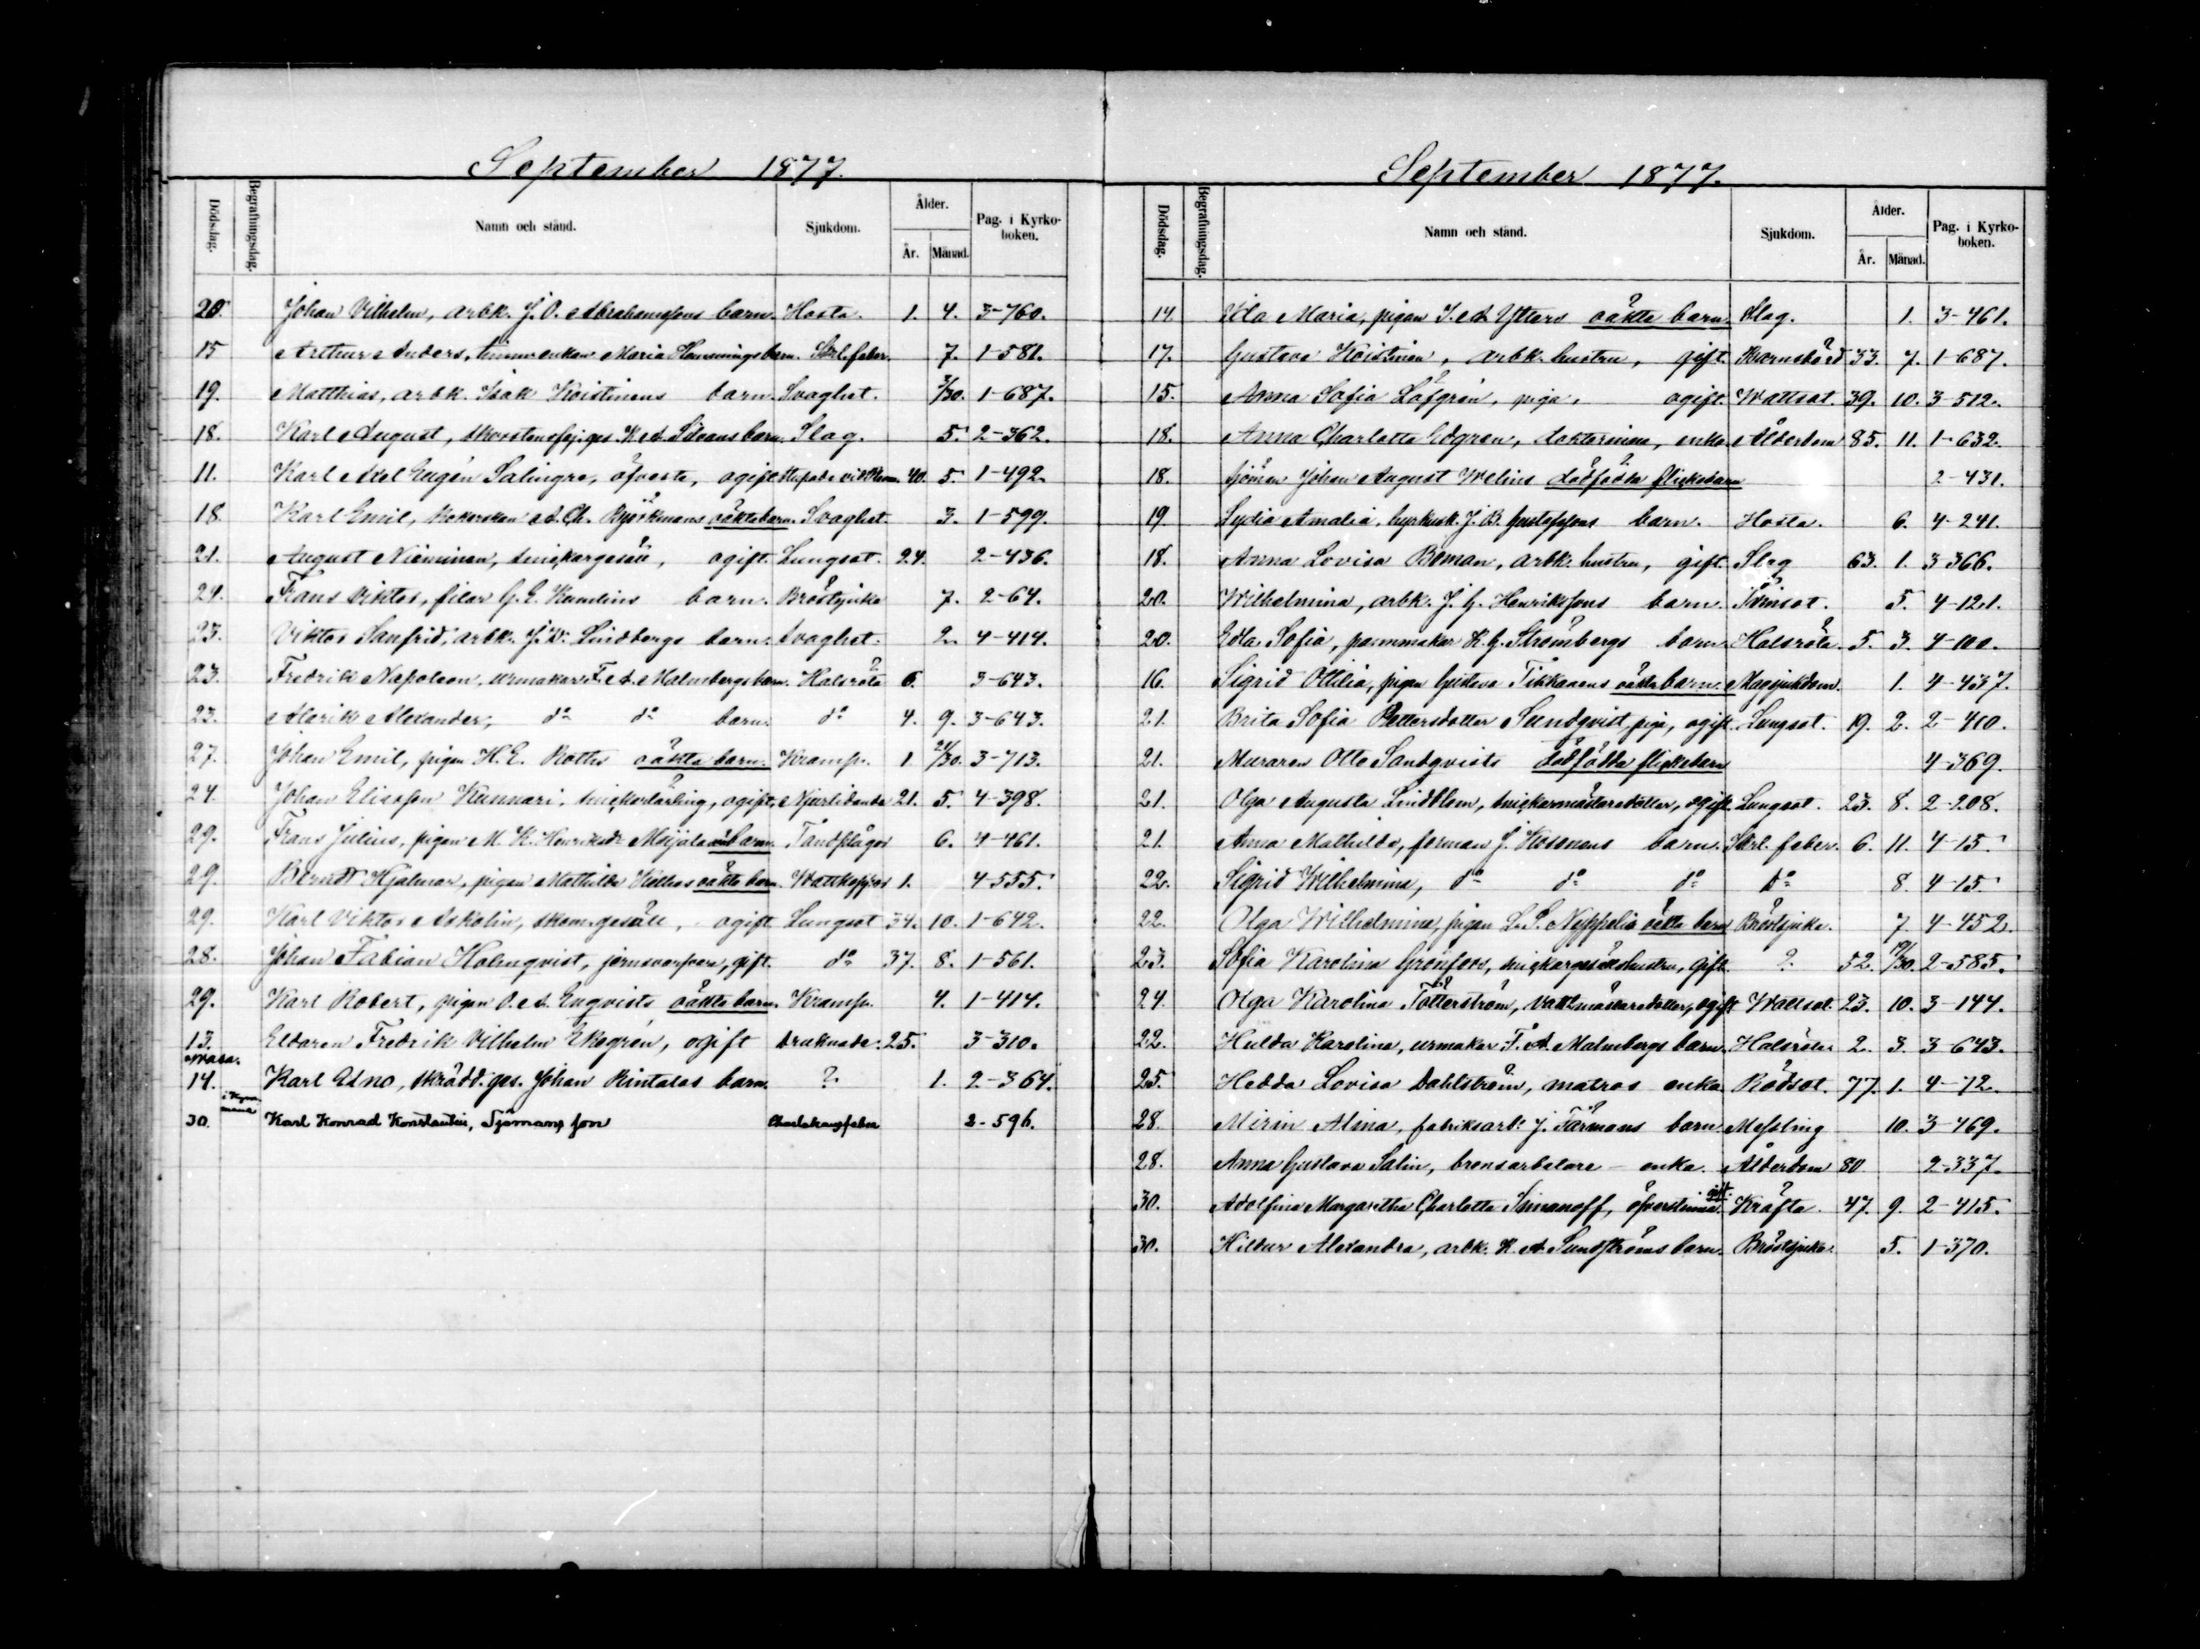 September 1877.
Dödsdag. Begrafningsdag. Namn och stånd. Sjukdom. Ålder. År. Månad. Pag. i Kyrko-boken.
20. Johan Vilhelm, arbk. J. O. Abrahamssons barn. Hosta. 1. 4. 3-760.
15 Arthur Anders, enkan Maria Hennings barn. Skrl. feber. 7. 1-581.
19. Matthias, arbk. Isak Koistinens barn. Svaghet. 3/30. 1-687.
18. Karl August, skorstensfej. ges. K. A. barn. Slag. 5. 2-362.
11. Karl Axel Eugén Salingre, öfverste, ogift Stupade vid 40. 5. 1-492.
18. Karl Emil, A. Ch. Björkmans oäkta barn. Svaghet. 3. 1-599.
21. August Nieminen, snickargesäll, ogift. Lungsot. 24. 2-436.
24. Frans Viktor, filar G. E. Kumlins barn. Bröstsjuka 7. 2-64.
23. Viktor Sanfrid, arbk. J. W. Lindbergs barn. Svaghet. 2. 4-414.
23. Fredrik Napoleon, urmakar F. A. Malmbergs barn. Halsröta 6. 3-643.
23. Alerik Alexander, do do barn. do 4. 9. 3-643.
27. Johan Emil, pigan H. E. Roths oäkta barn. Kramp. 1. 21/30. 3-713.
24. Johan Eliasson Kunnari, snickerlärling, ogift, Njurlidande 21. 5. 4-398.
29. Frans Julius, pigan M. K. Henriksdr Meijala oä barn. Tandplågor 6. 4-461.
29. Berndt Hjalmar, pigan Mathilda oäkta barn. Wattskoppor 1. 4-555.
29. Karl Viktor Askolin, skom. gesäll, ogift Lungsot 34. 10. 1-642.
28. Johan Fabian Holmqvist, jernsvarfvare, gift. do 37. 8. 1-561.
29. Karl Robert, pigan O. A. Enqvists oäkta barn. Kramp. 4. 1-414.
13. Eldaren Fredrik Vilhelm Ekegrén, ogift drunknade. 25. 3-310.
14. Karl Eino, skrädd. ges. Johan Rintalas barn. ? 1. 2-364.
30. Karl Konrad Konstantin, Sjömans son 2-596.
September 1877.
Dödsdag. Begrafningsdag. Namn och stånd. Sjukdom. Ålder. År. Månad. Pag. i Kyrko-boken.
14 Ida Maria, pigan oäkta barn. Slag. 1. 3-461.
17. Gustava Koistinen, arbk. hustru, gift. Barnsbörd 33. 7. 1-687.
15. Anna Sofia Löfgrén, piga, ogift. Wattsot. 39. 10. 3-512.
18. Anna Charlotta Edgren, doktorinna, enka Ålderdom 85. 11. 1-632.
18. Sjöman Johan August Welins dödfödda flickebarn 2-431.
19. Lydia Amalia, hyrkusk. J. B. Gustafssons barn. Hosta. 6. 4-241.
18. Anna Lovisa Boman, arbk. hustru, gift. Slag 63. 1. 3-366.
20. Wilhelmina, arbk. J. G. Henrikssons barn. Tvinsot. 5. 4-121.
20. Edla Sofia, pannmakar K. G. Strömbergs barn. Halsröta. 5. 3. 4-100.
16. Sigrid Ottilia, pigan Gustava Tikkanens oäkta barn. Magsjukdom. 1. 4-437.
21. Brita Sofia Pettersdotter Sundqvist, piga, ogift. Lungsot. 19. 2. 2-410.
21. Muraren Otto Sandqvists dödfödda flickebarn 4-369.
21. Olga Augusta Lindblom, snickarmästaredotter, ogift. Lungsot. 23. 8. 2-208.
21. Anna Mathilda, forman J. Kosonens barn. Skrl. feber. 6. 11. 4-15.
22. Sigrid Wilhelmina, do do do do 8. 4-15.
22. Olga Wilhelmina, pigan L. S. Nyppeliä oäkta barn Bröstsjuka. 7. 4-452.
23. Sofia Karolina Grönfors, snickargesällshustru, gift. ? 52. 19/30. 2-585.
24. Olga Karolina Totterström, vaktmästaredotter, ogift Wattsot. 23. 10. 3-144.
22. Hulda Karolina, urmakar F. A. Malmbergs barn. Halsröta 2. 3. 3-643.
25. Hedda Lovisa Dahlström, matros enka Rödsot. 77. 1. 4-72.
28. Mirin Alma, fabriksarb: J. Färmans barn. Messling 10. 3-469.
28. Anna Gustava Salin, bronsarbetare - enka. Ålderdom 80 2-337.
30. Adolfina Margaretha Charlotta Simanoff, öfverstinna. gift. Kräfta. 47. 9. 2-415.
30. Hildur Alexandra, arbk. K. A. Sundströms barn. Bröstsjuka. 5. 1-370.